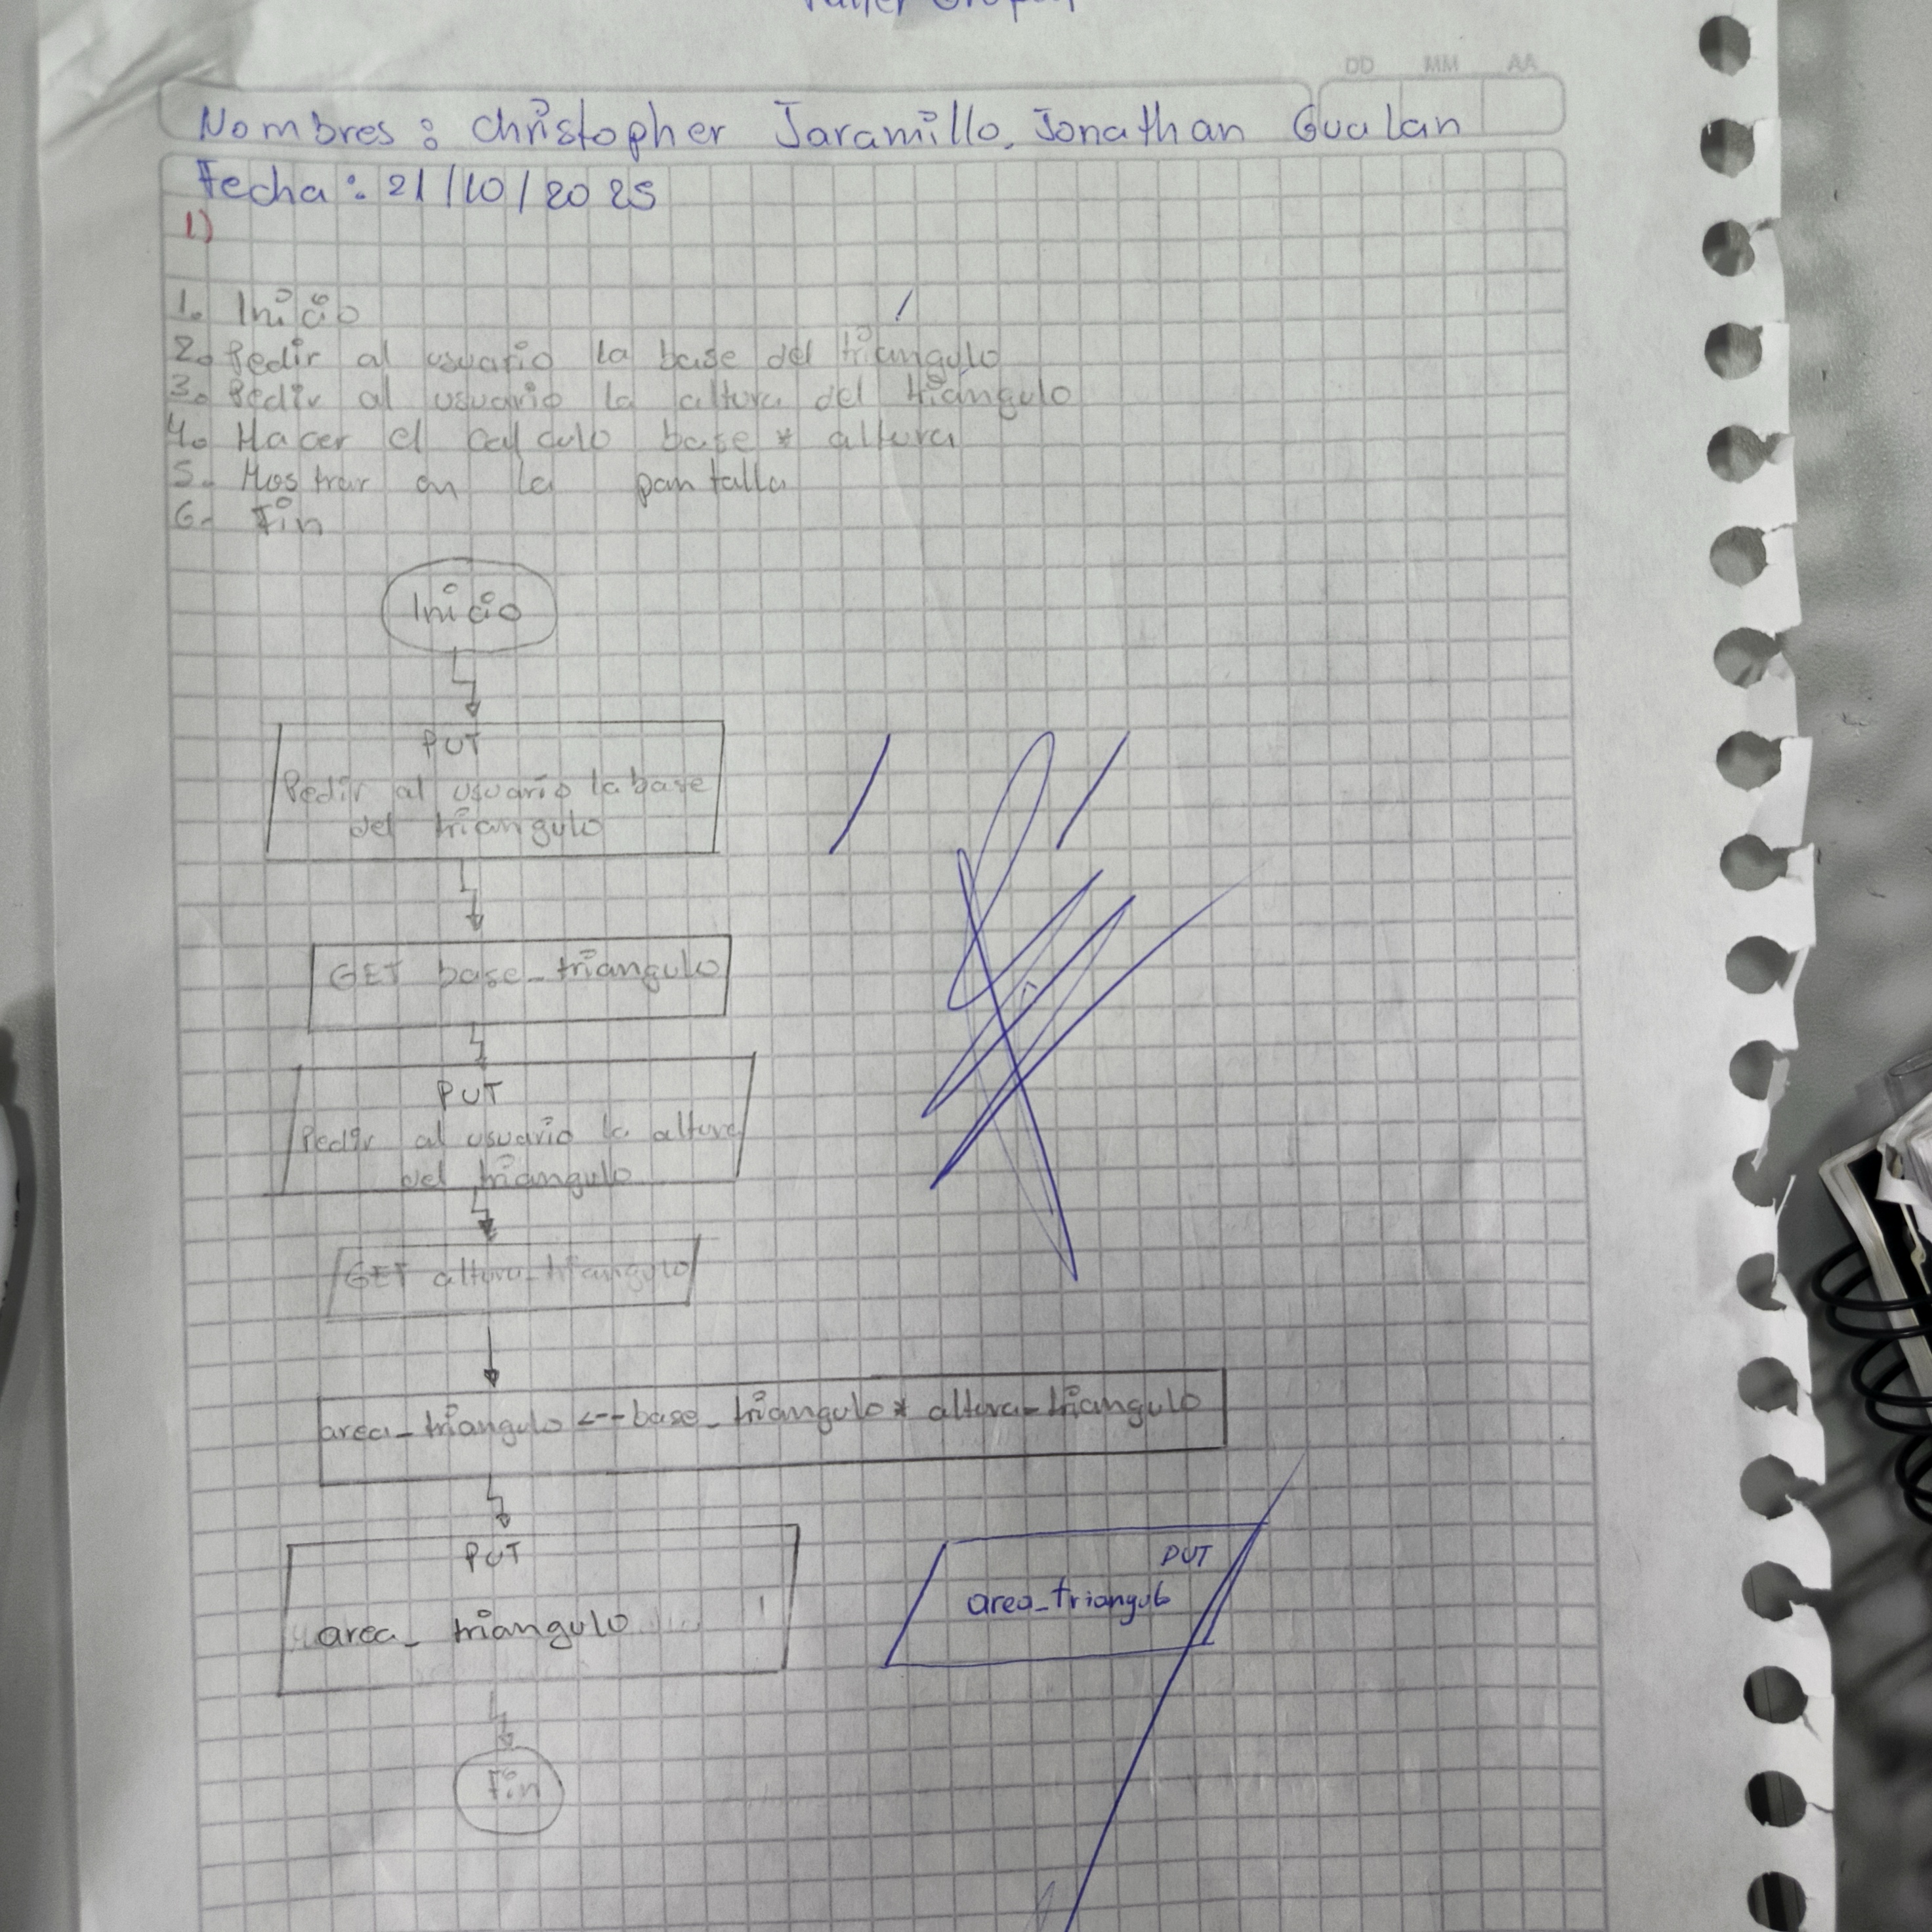 DD MM AA
Nombres: Christopher Jaramillo, Jonathan Gualan
Fecha: 21/10/2025
1)
1. Inicio
2. Pedir al usuario la base del triangulo
3. Pedir al usuario la altura del triangulo
4. Hacer el calculo base * altura
5. Mostrar en la pantalla
6. Fin
Inicio
PUT
Pedir al usuario la base
del triangulo
GET base_triangulo
PUT
Pedir al usuario la altura
del triangulo
GET altura_triangulo
area_triangulo <-- base_triangulo * altura_triangulo
PUT
area_triangulo
PUT
area_triangulo
Fin